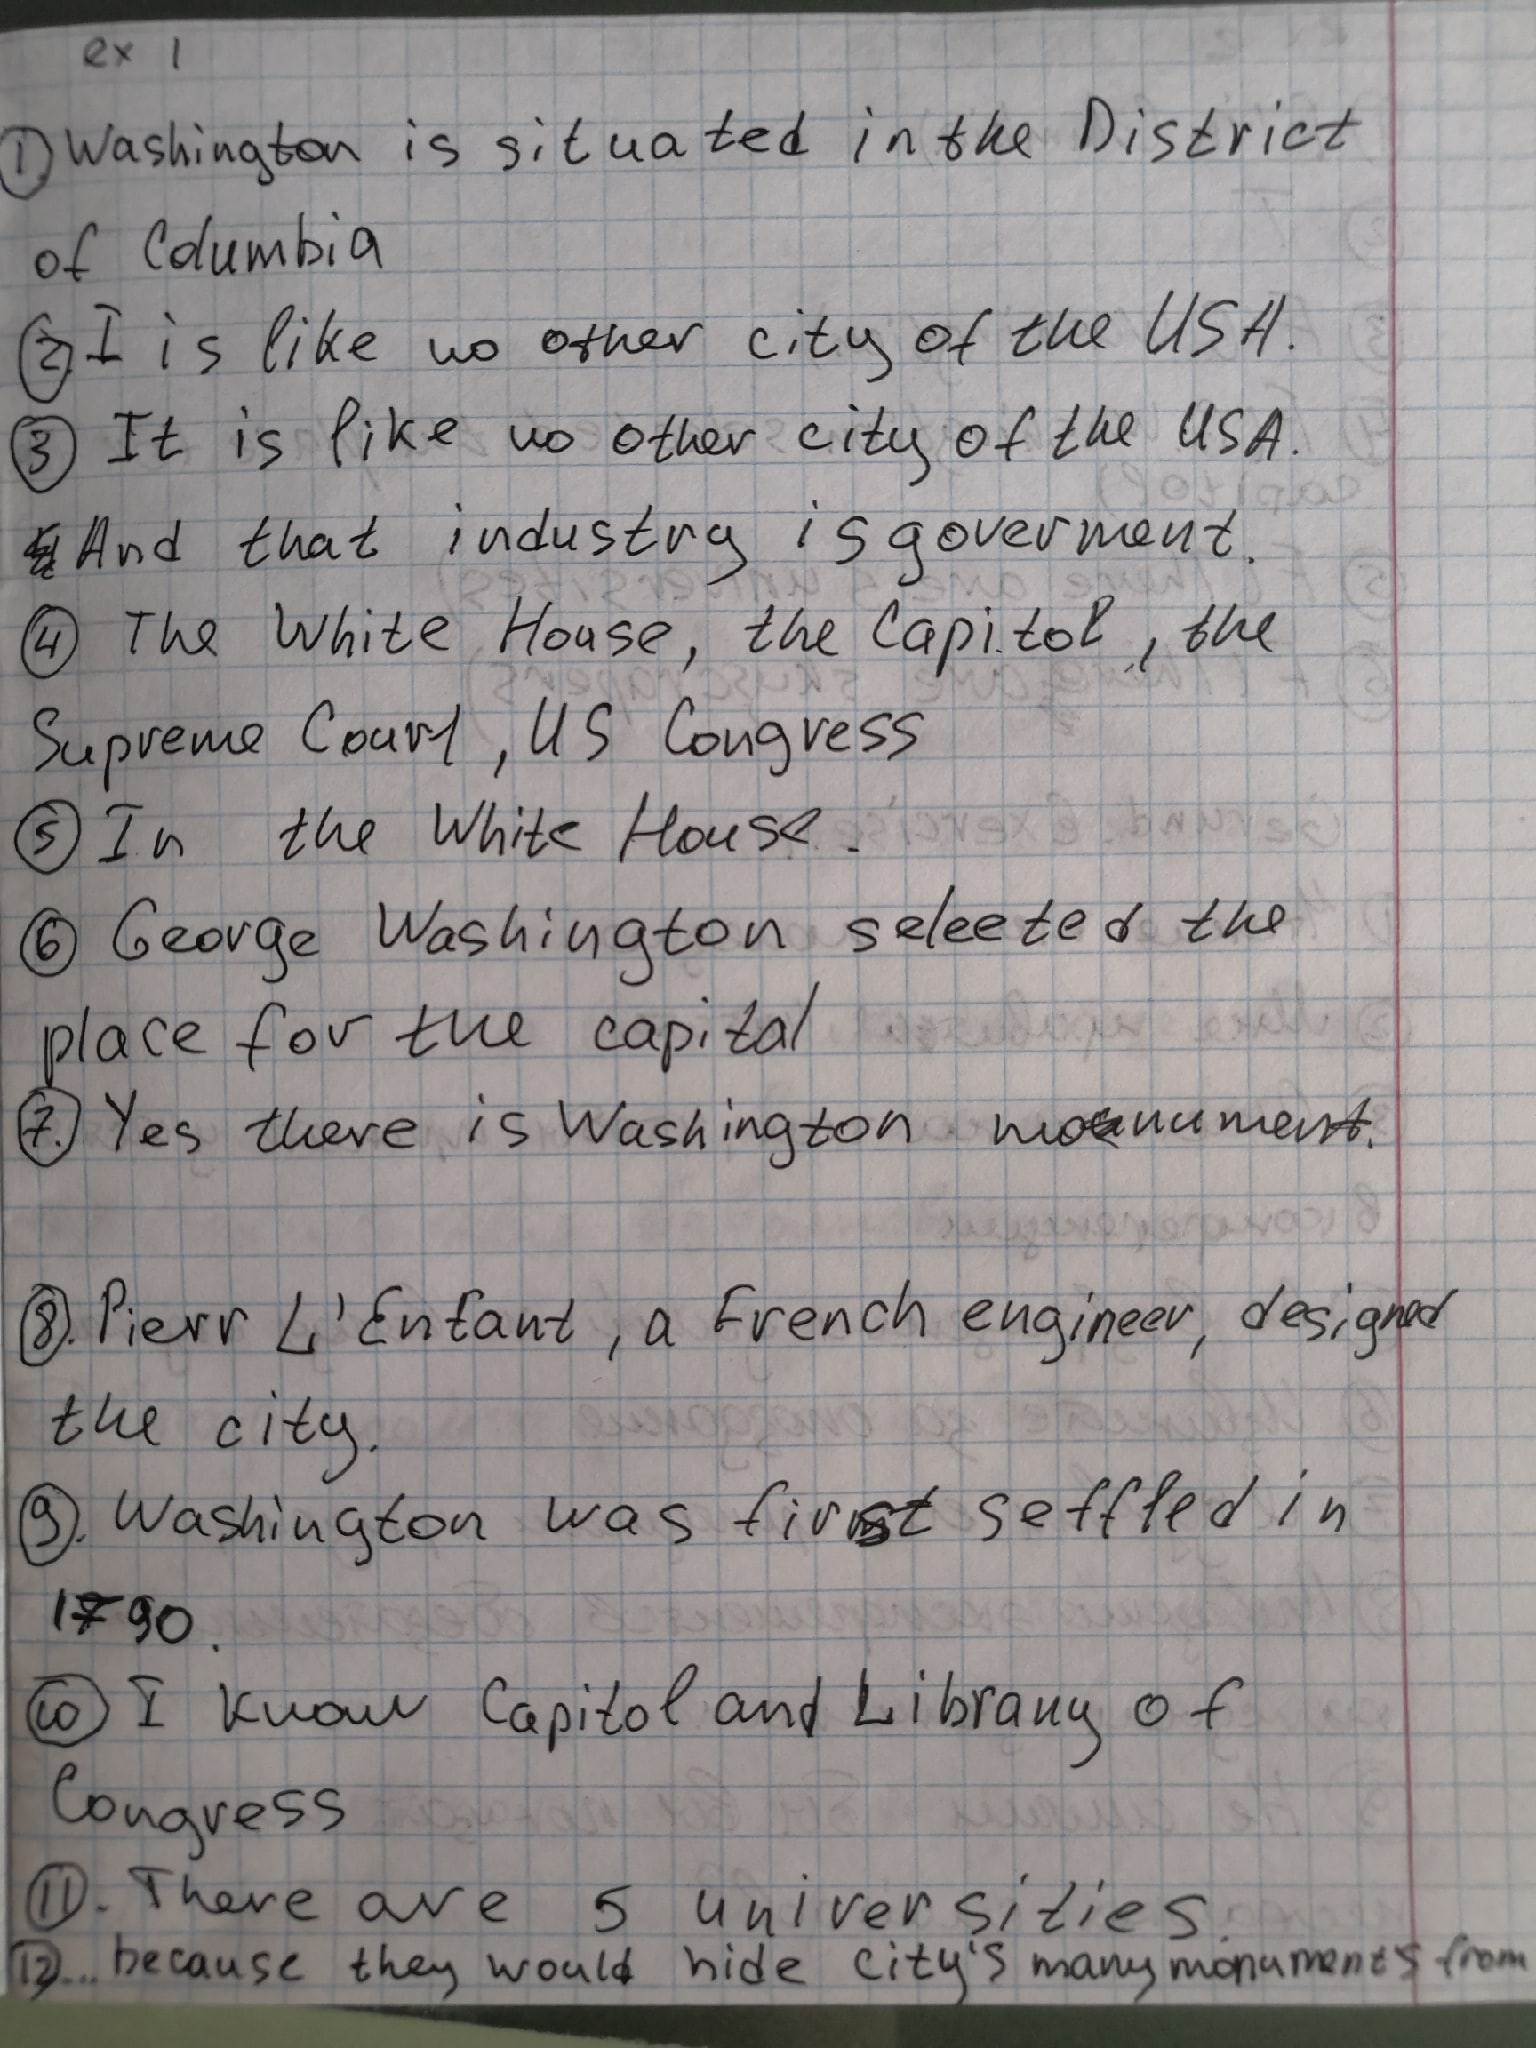 ex 1
① Washington is situated in the District
of Columbia
②. I is like no other city of the USA.
③ It is like no other city of the USA.
And that industry is goverment.
④ The White House, the Capitol, the
Supreme Court, US Congress
⑤ In the White House.
⑥ George Washington seleeted the
place for the capital
⑦. Yes there is Washington monument.
⑧. Pierr L'Enfant, a French engineer, designed
the city.
⑨. Washington was first settled in
1790.
⑩ I know Capitol and Library of
Congress
⑪. There are 5 universities.
⑫... because they would hide city's many monuments from